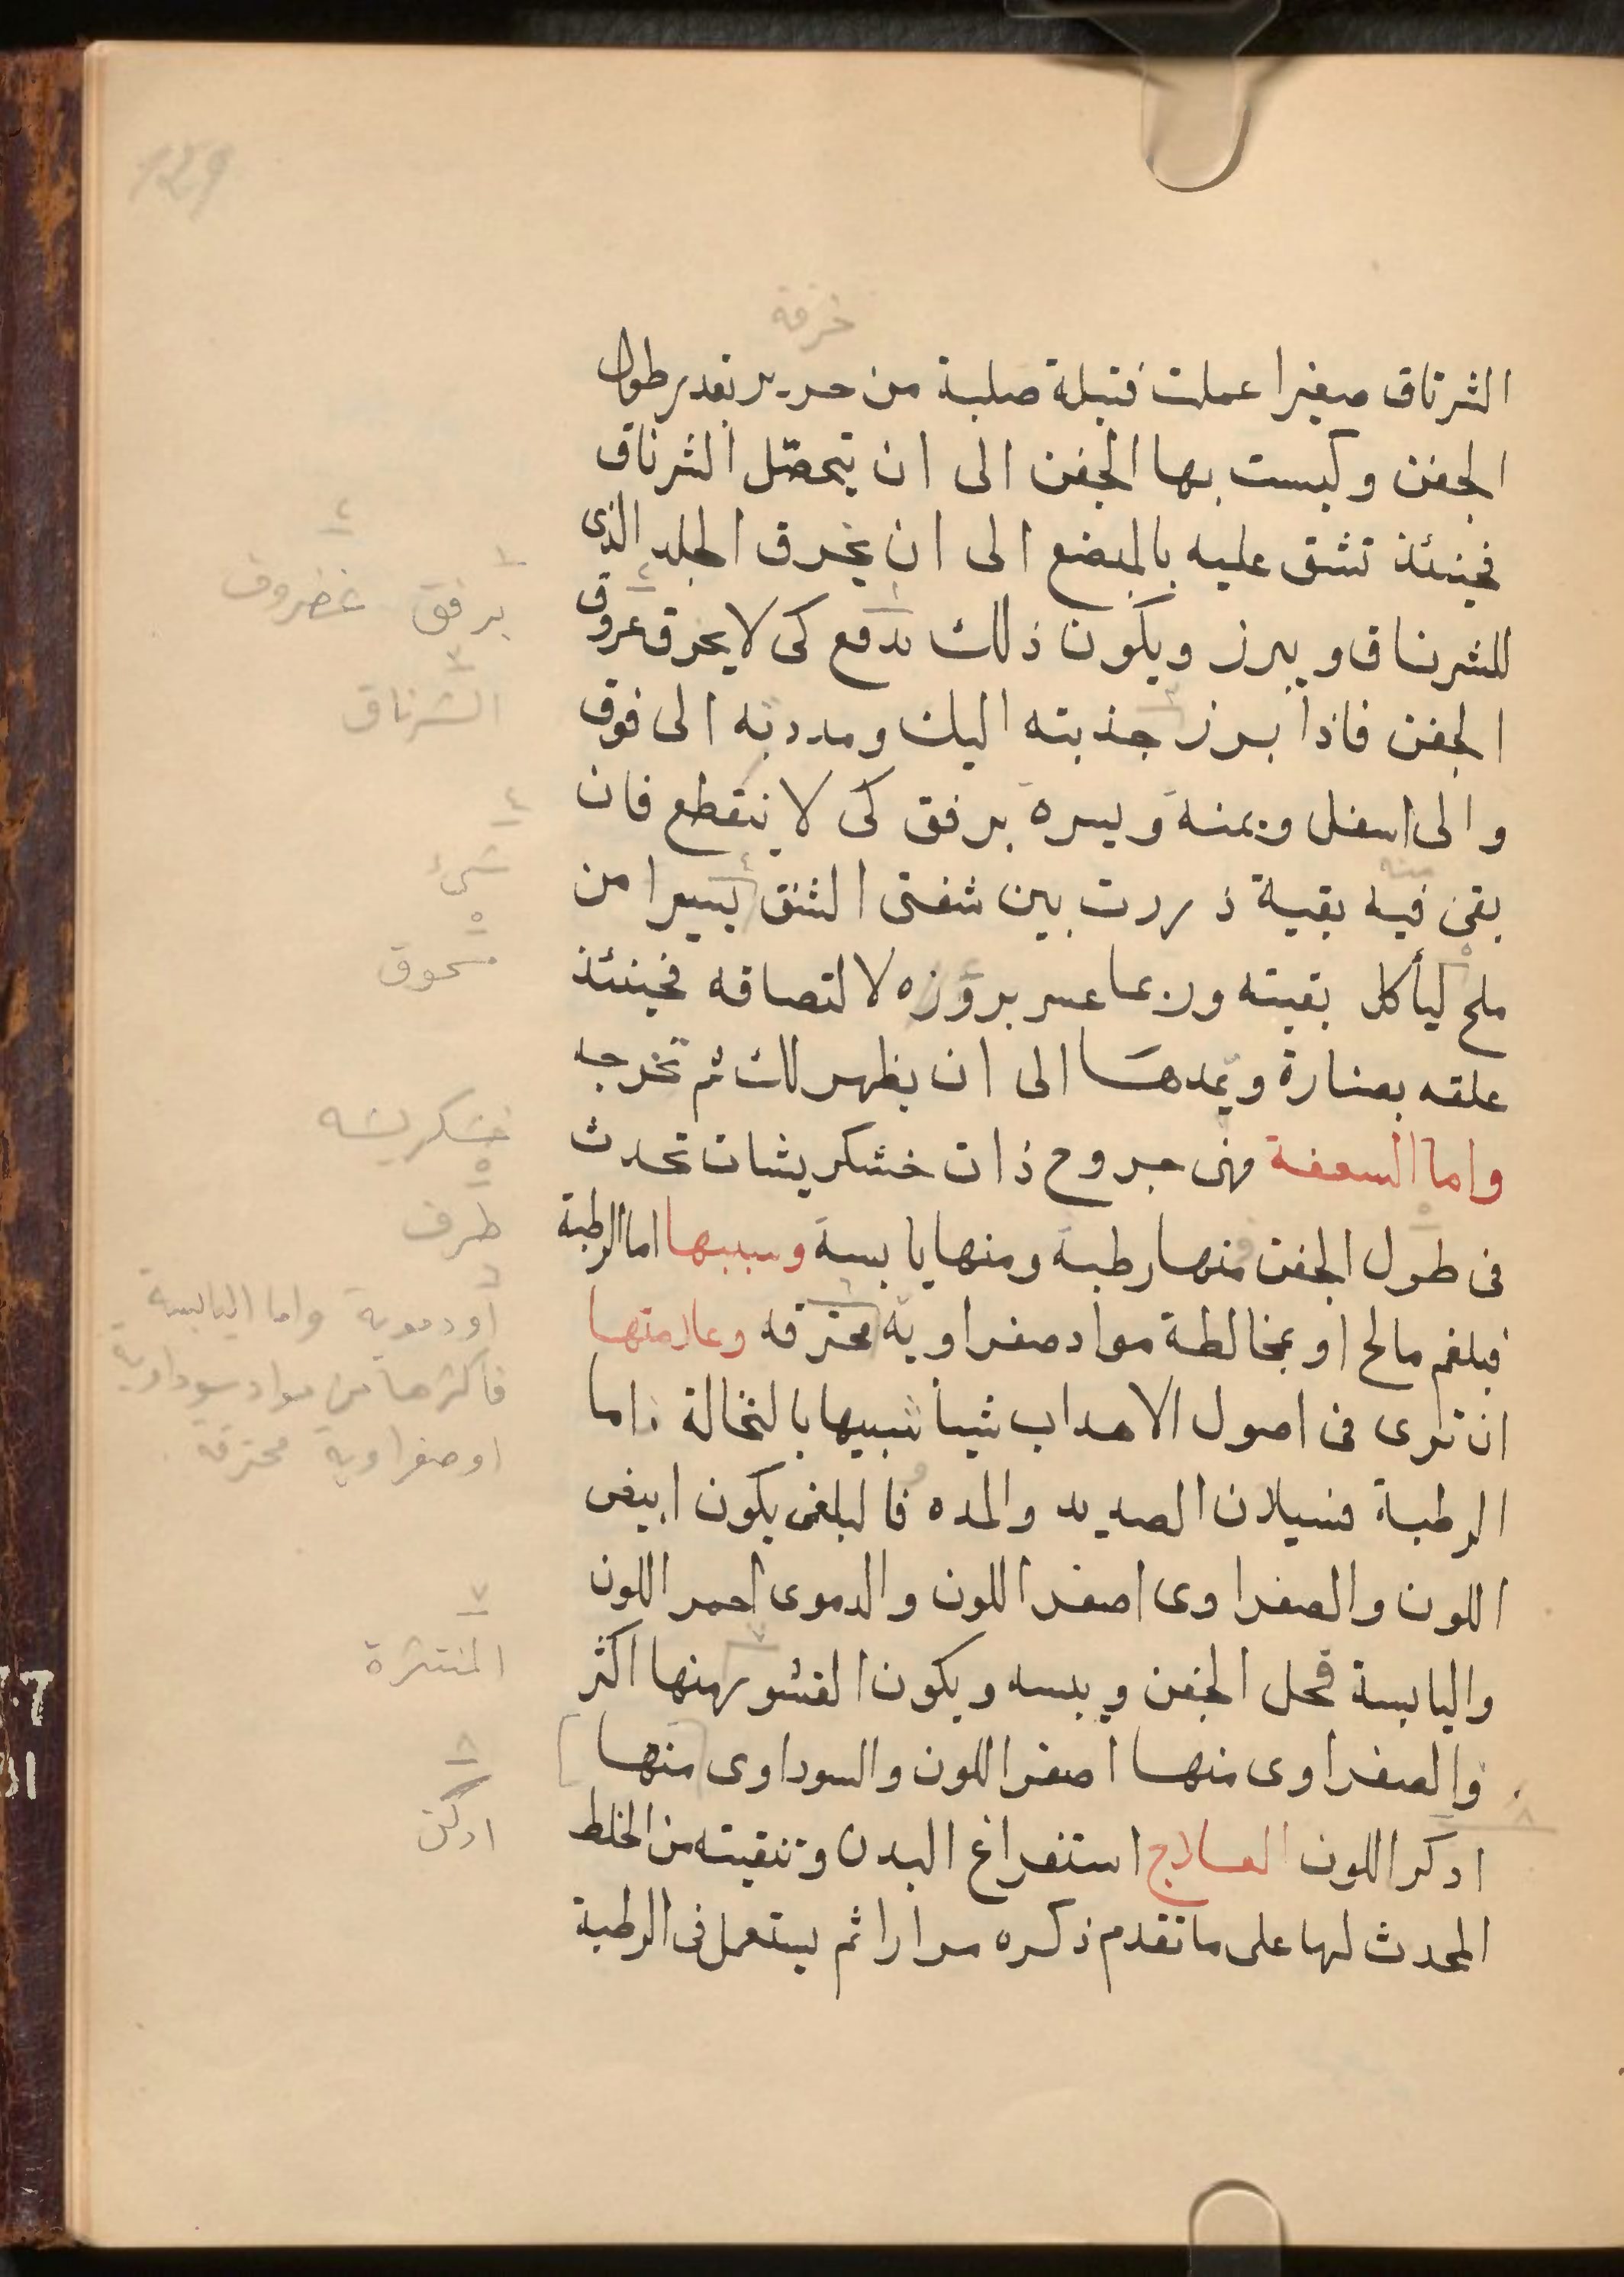 129
خرقة
الشرناق صغيرا عملت فتيلة صلبة من حرير بقدر طول
الجفن وكبست بها الجفن الى ان يتحصّل الشرناق
فحينئذ تشق عليه بالمبضع الى ان يخرق الجلد الذى
للشرناق ويبرز ويكون ذلك بدفع كى لا يخرق عروق
الجفن فاذا برز جذبته اليك ومددته الى فوق
والى اسفل ويمنة ويسرة برفق كى لا ينقطع فان
منه
بقى فيه بقية ذررت بين شفتى الشق يسيرا من
ملح ليأكل بقيته وربما عسر بروزه لالتصاقه فحينئذ
علقه بصنارة ويمدها الى ان يظهر لك ثم تخرجه
واما السعفة فهى جروح ذات خشكريشات تحدث
فى طول الجفن منها رطبة ومنها يابسة وسببها اما الرطبة
فبلغم مالح او بمخالطة مواد صفراوية محترقه وعلامتها
ان ترى فى اصول الاهداب شيأ شبيها بالنخالة واما
الرطبة فسيلان الصديد والمده فالبلغمى يكون ابيض
اللون والصفراوى اصفر اللون والدموى احمر اللون
واليابسة قحل الجفن ويبسه ويكون القشور منها اكثر
والصفراوى منها اصفر اللون والسوداوى منها
ادكر اللون العلاج استفراغ البدن وتنقيته من الخلط
المحدث لها على ما تقدم ذكره مرارا ثم يستعمل فى الرطبة
١ برفق
٢ غضروف
٣ الشرناق
٤ شىء
٥ مسحوق
خشكريشه
٥ طرف
٦ أو دموية واما اليابسة
فأكثرها من مواد سوداوية
او صفراوية محترقة
٧ المنتثرة
٨ ادكن